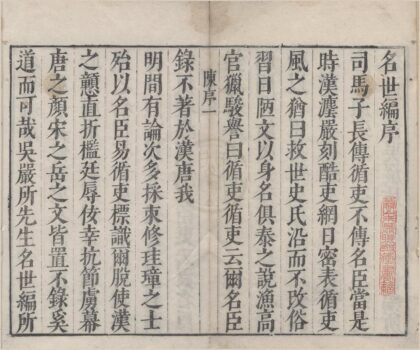 名世編序
司馬子長傳循吏不傳名臣當是
時漢塵嚴刻酷吏網日密表循吏
風之猶曰救世史氏沿而不改俗
習日陋文以身名俱泰之說漁高
官獵駿譽曰循吏循吏云爾名臣
陳序一
錄不著於漢唐我
明間有論次多採束修珪璋之士
殆以名臣易循吏標識爾脫使漢
之戇直折檻廷辱佞幸抗節虜幕
唐之顏宋之岳之文皆置不錄奚
道而可哉吳嚴所先生名世編所